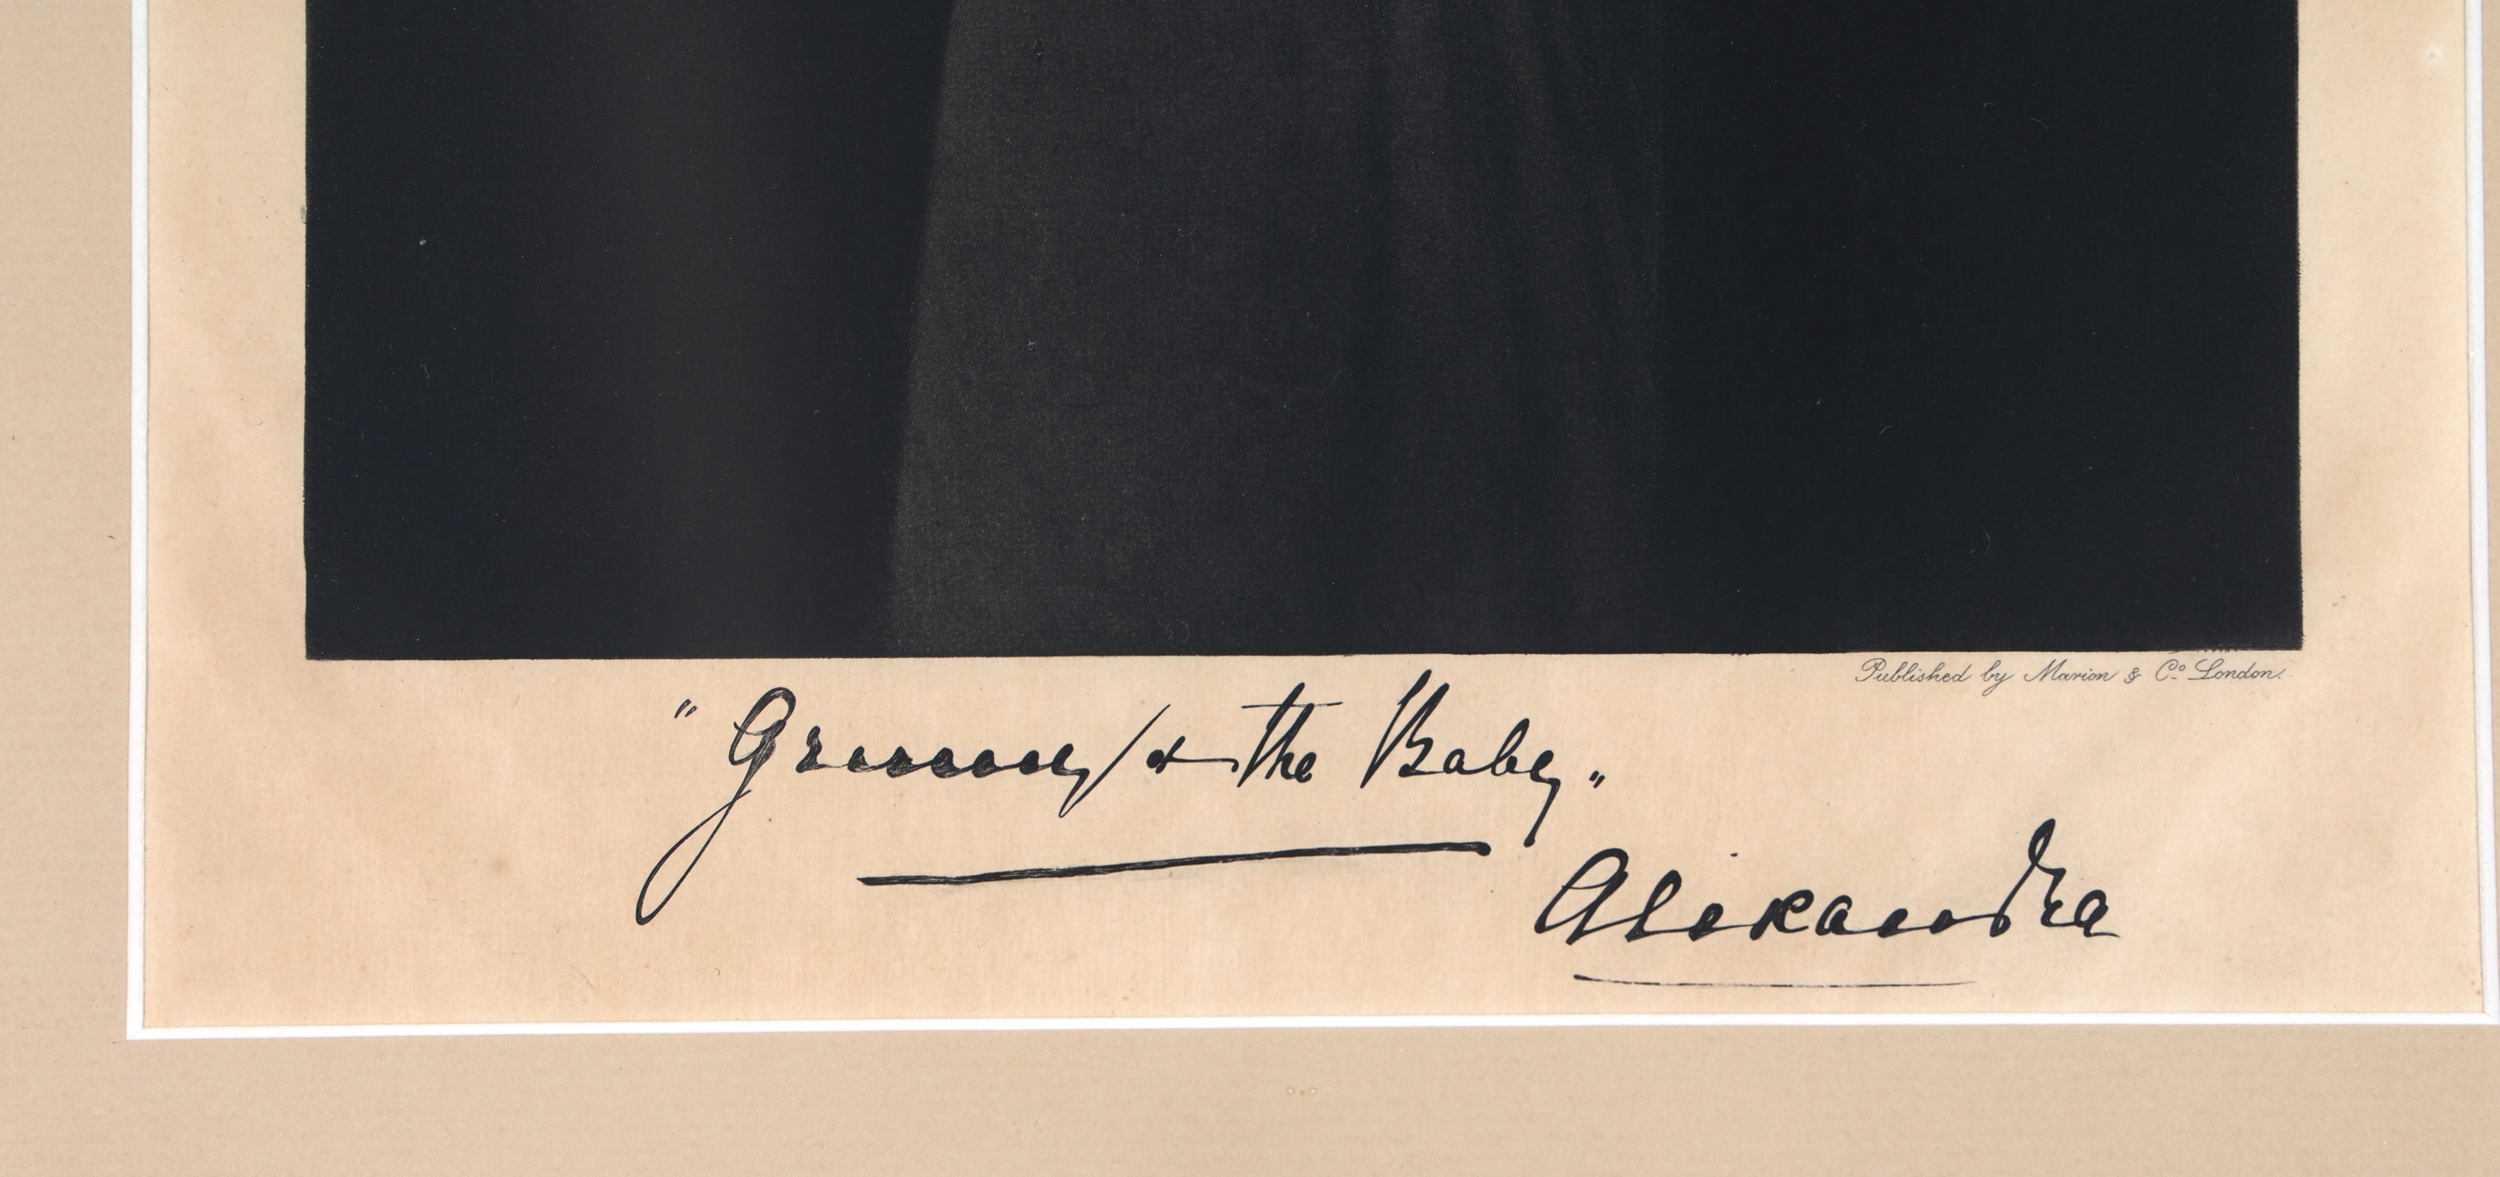 Published by Marion & Co. London.
"Granny & the Baby"
Alexandra